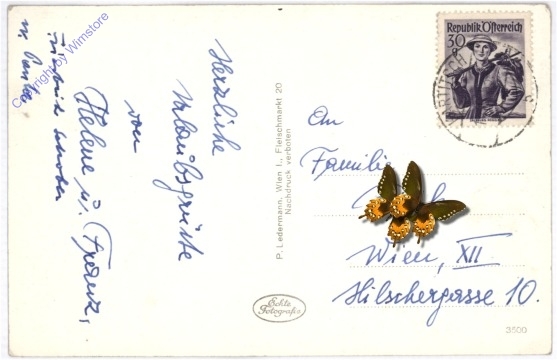 Copyright by Wimstore
Herzliche
Urlaubsgrüsse
von
Helene u. Franz,
P. Ledermann, Wien I., Fleischmarkt 20
Nachdruck verboten
Republik Österreich
30 g
An
Familie
Wien, XII
Hilschergasse 10.
Echte
Fotografie
3500